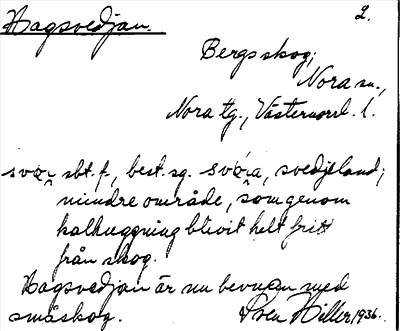 Hagsvedjan.
2.
Bergs skog;
Nora sn.,
Nora tg., Västernorrl. l.
svœr sbt. f., best. sg. svœ́ra, svedjeland;
mindre område, som genom
kalhuggning blivit helt fritt
från skog.
Hagsvedjan är nu bevuxen med
småskog.
Sven Hiller 1936.